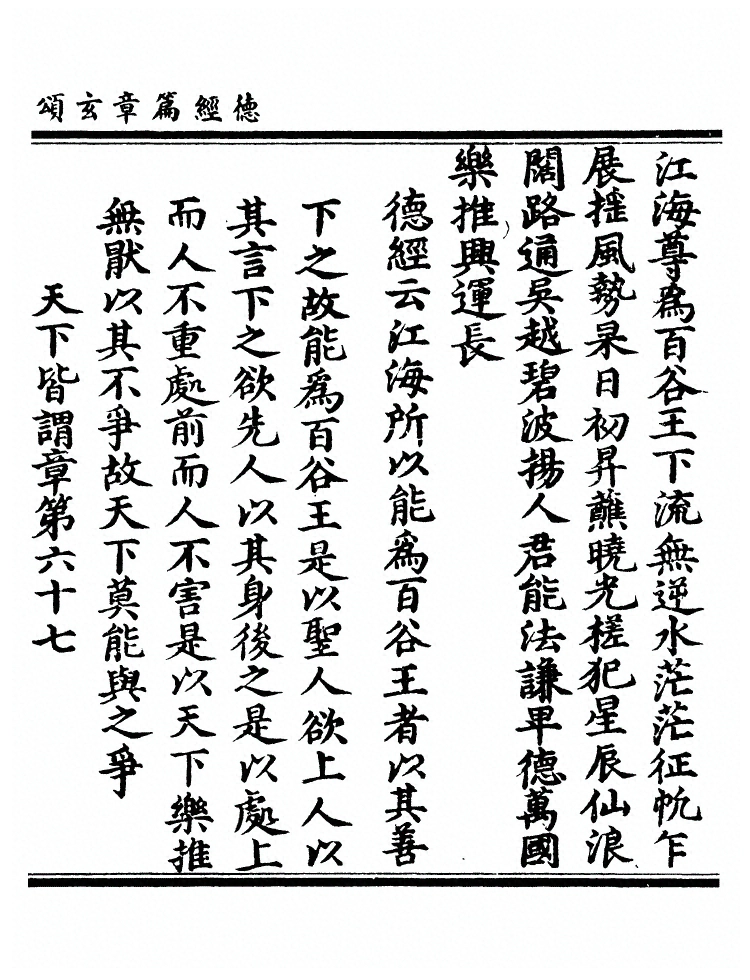 德經篇章玄頌
江海尊為百谷王下流無逆水茫茫征帆乍
展揺風勢杲日初昇蘸曉光槎犯星辰仙浪
闊路通吳越碧波揚人君能法謙卑德萬國
樂推興運長
德經云江海所以能為百谷王者以其善
下之故能為百谷王是以聖人欲上人以
其言下之欲先人以其身後之是以處上
而人不重處前而人不害是以天下樂推
無猒以其不爭故天下莫能與之爭
天下皆謂章第六十七